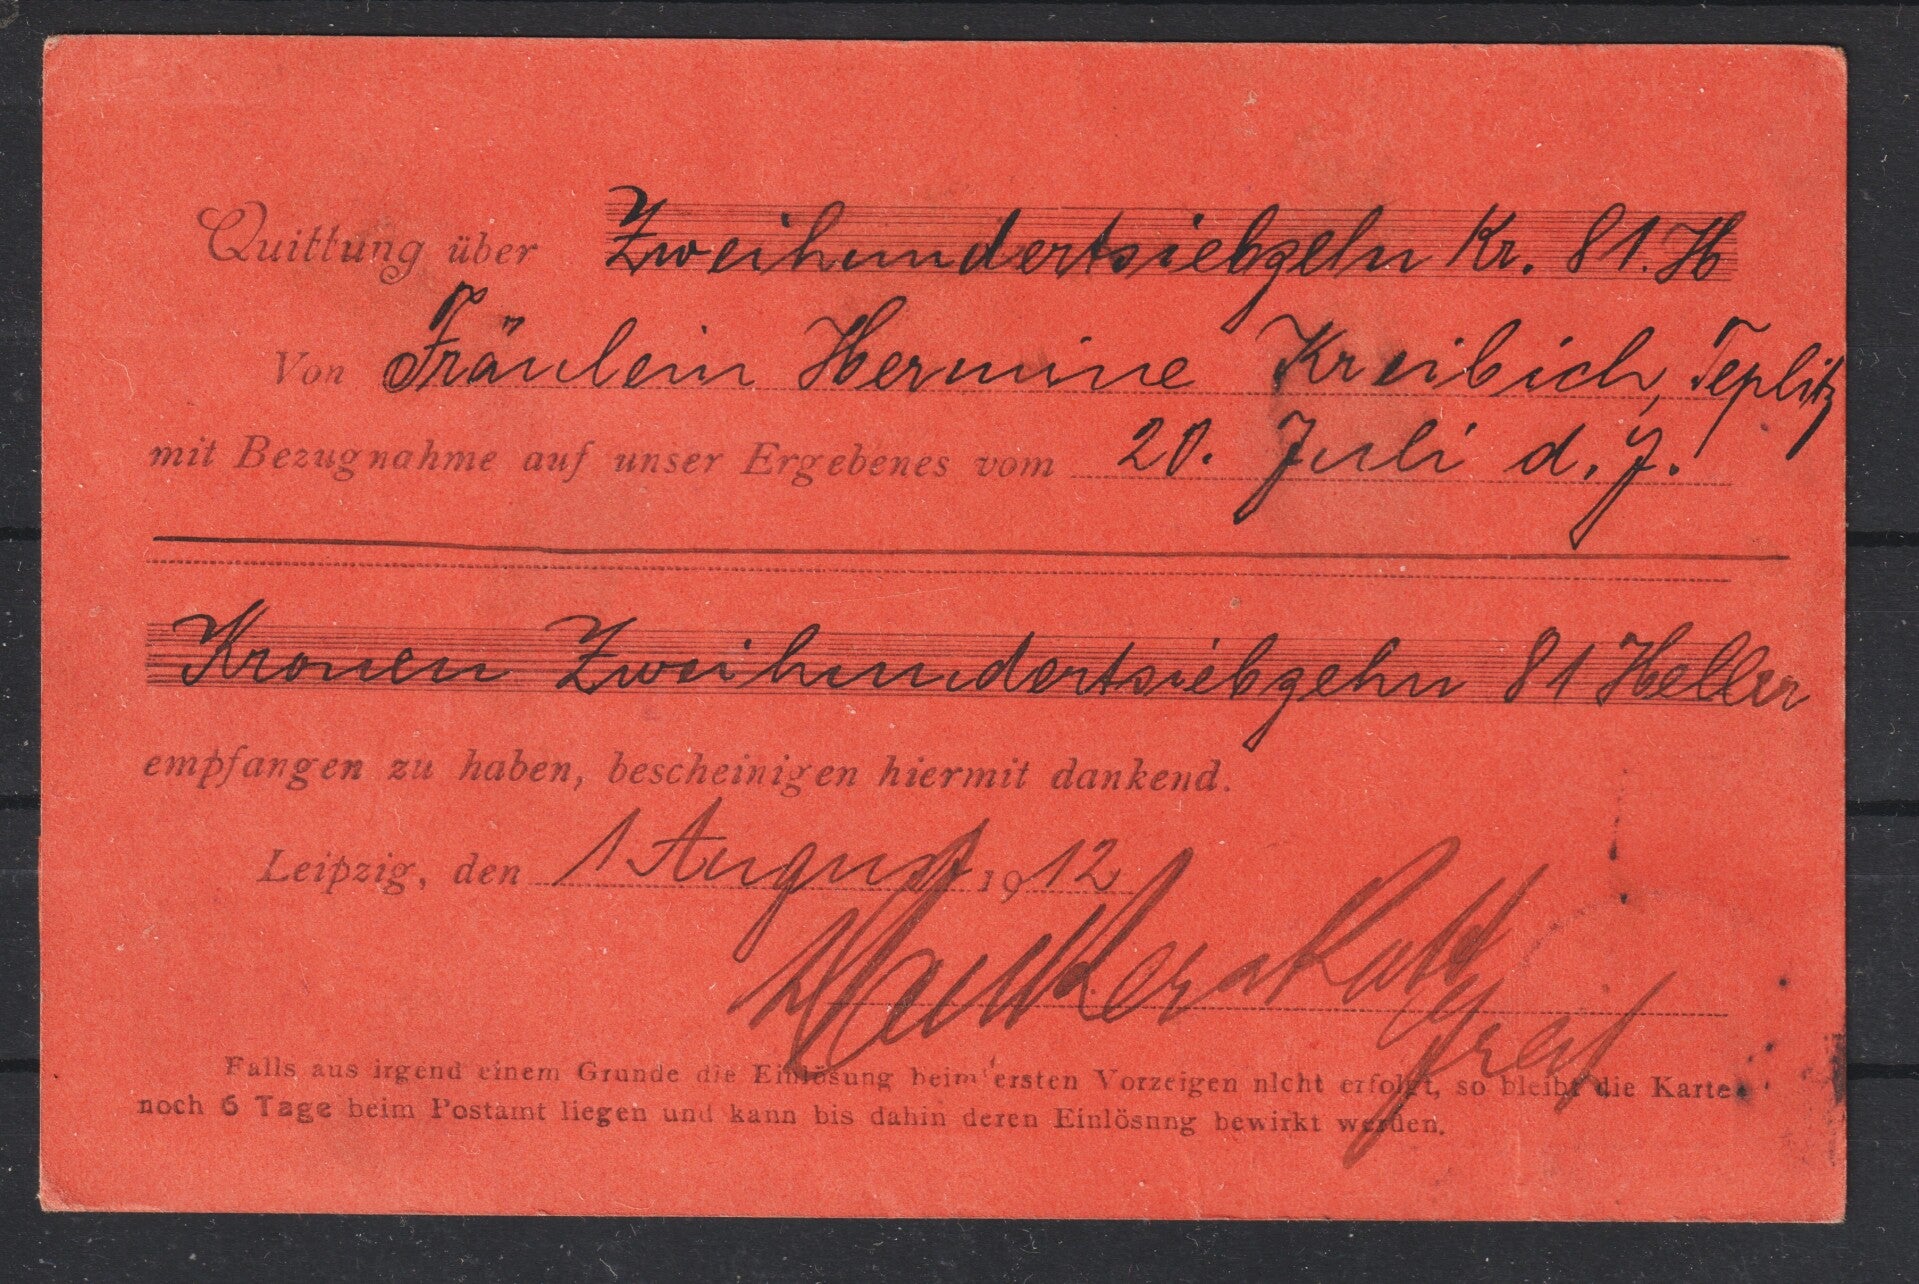 Quittung über Zweihundertsiebzehn Kr. 81. H
Von Fräulein Hermine Kreibich, Teplitz
mit Bezugnahme auf unser Ergebenes vom 20. Juli d. J.
Kronen Zweihundertsiebzehn 81 Heller
empfangen zu haben, bescheinigen hiermit dankend.
Leipzig, den 1 August 1912
Falls aus irgend einem Grunde die Einlösung beim ersten Vorzeigen nicht erfolgt, so bleibt die Karte
noch 6 Tage beim Postamt liegen und kann bis dahin deren Einlösnng bewirkt werden.